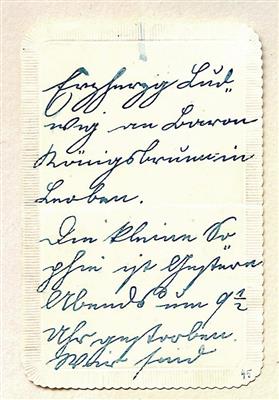 Erzherzog Lud„
wig an Baron
Königsbrunn in
Leoben.
Die kleine So
phie ist Gestern
Abends um 9 1/2
Uhr gestorben.
Wir sind
45